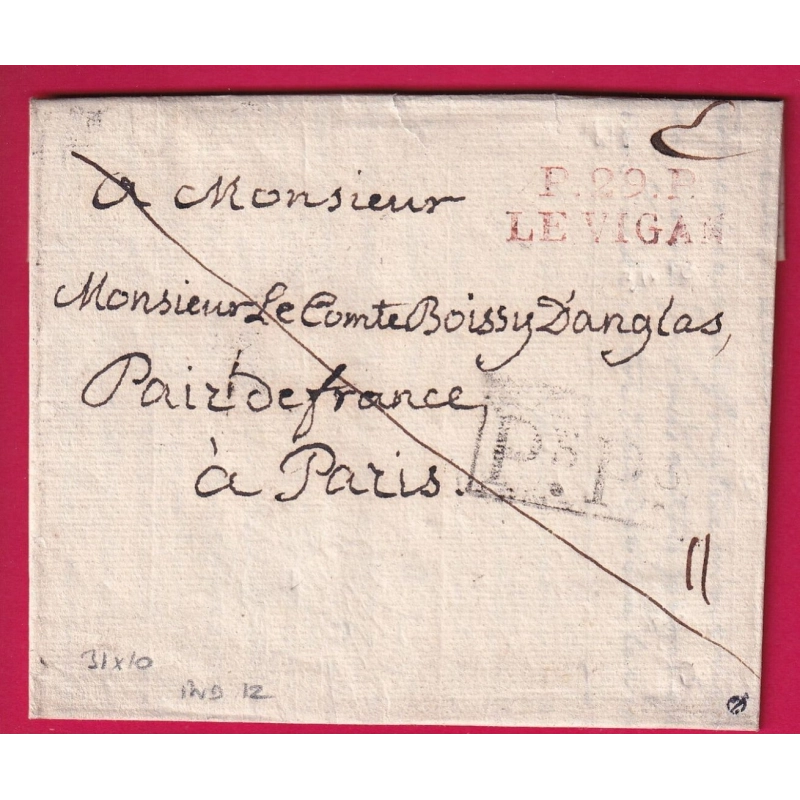 P.29.P.
LE VIGAN
A Monsieur
Monsieur Le Comte Boissy D'anglas,
Pair de france
à Paris.
P.P.
11
31x10
IND 12